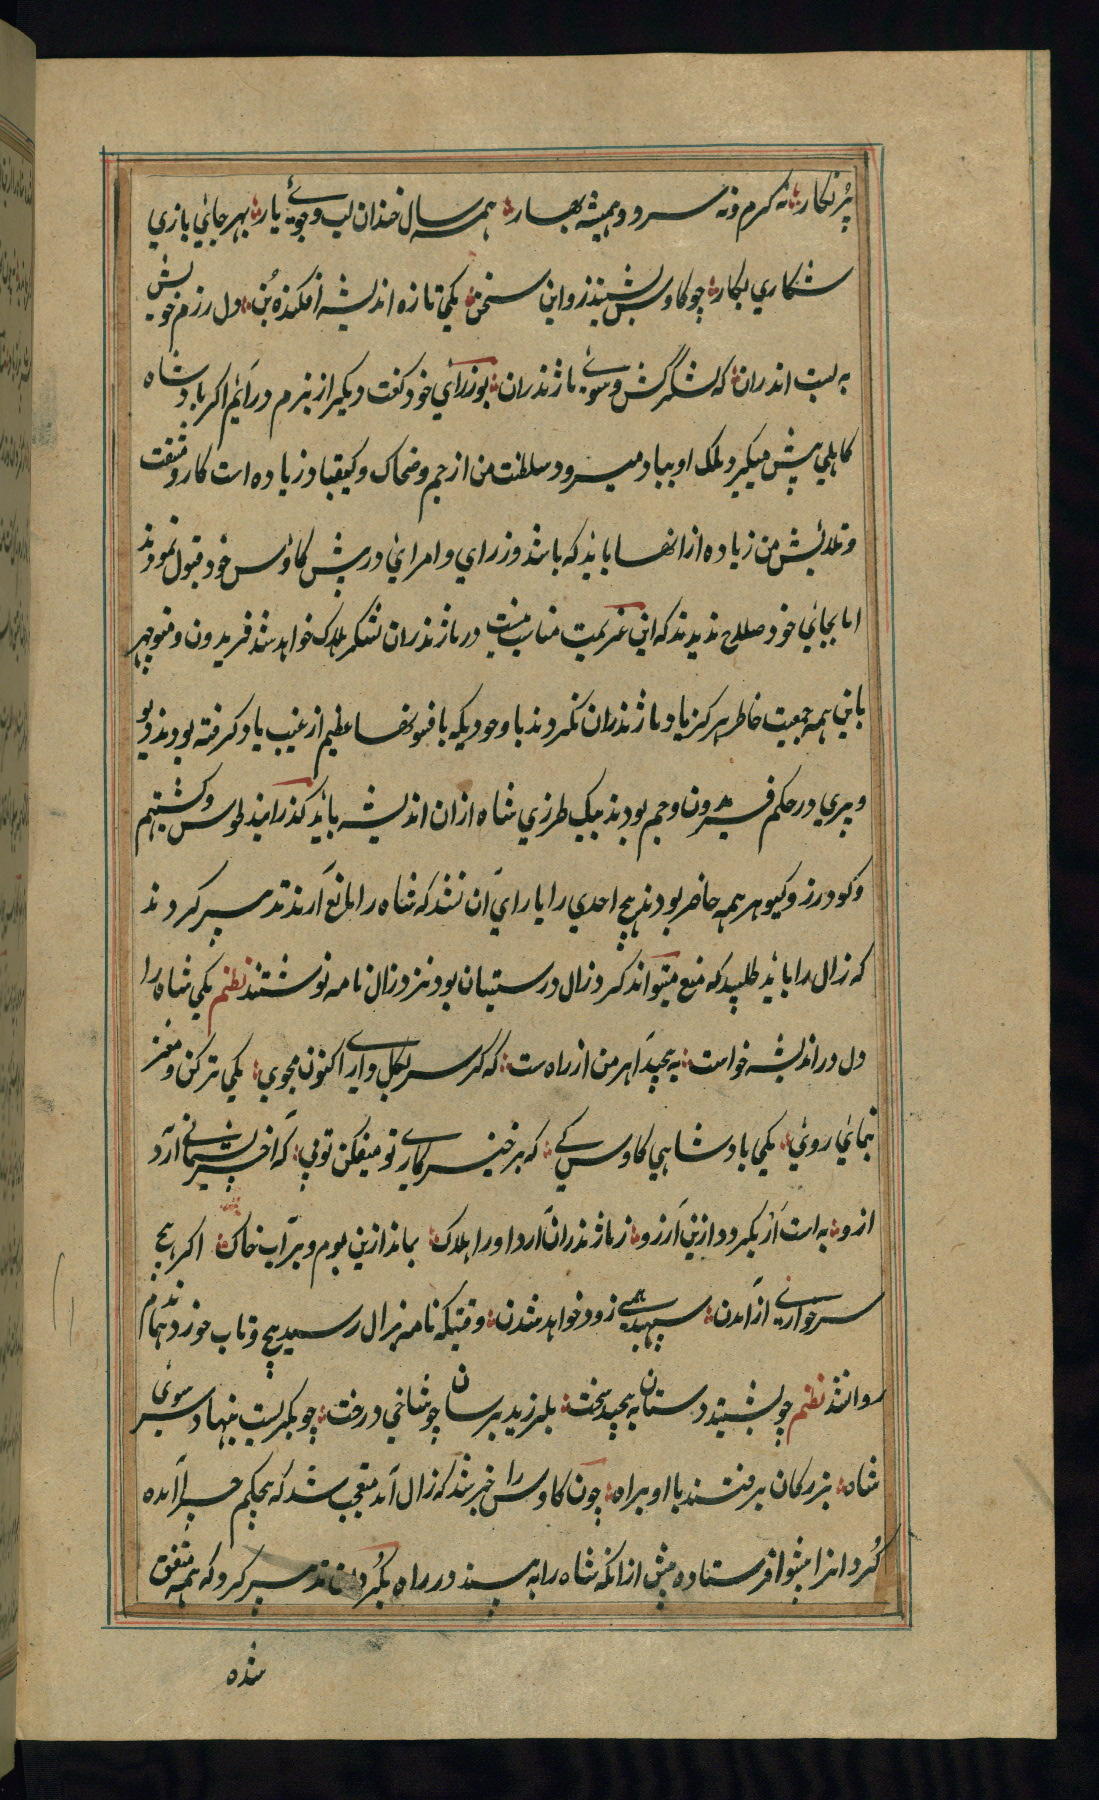 پُر نکار نه کرم ونه سرد و همیشه بهار همه سال خندان لب و جوئے یار بهر جائي بازي
شکاري بکار چو کاوس بشنید زو این سخن یکي تازه اندیشه افکنده بُن دل رزم خویش
به بست اندران که لشگر کش وسوئے ماژندران بوزرائي خود کفت دیکر از بزم درآئم اکر بادشاه
کاهلي پیش میکیرد ملک او بباد میرود سلطنت من از جم و ضحاک و کیقباد زیاده است کار و
و تلاش من زیاده از انها باید که باشد وزراي و امراي در پیش کاوس خود قبول نمودند
اما بجائي خود صلاح ندیدند که این عزیمت مناسب نیست در ماژندران لشکر هلاک خواهد شد فریدون و منوچهر
باین همه جمعیت خاطر هرکز یاد ماژندران نکردند باوجودیکه افسونها عظیم از غیب یاد کرفته بودند دیو
و پري در حکم فریدون و جم بودند بیک طرزي شاه ازان اندیشه باید کذرانید طوس و کشتهم
و کودرز و کیو هر همه حاضر بودند هیچ احدي را یاراي آن نشد که شاه را مانع آرند تدبیر کردند
که زال را باید طلبید که منع میتواند کرد زال در سیستان بود نزد زال نامه نوشتند نظم یکي شاه را
دل در اندیشه خواست به پیچید اهرمن از راه است که کر سر بکل داري اکنون مجوي یکي تیز کن مغز
بنمائي روئي یکي بادشاهي کاوس کے که بر خیره کاري تو میفکن توپي که آخر پشیماني آرد
ازو به است ار بکردد ازین آرزو ز ماژندران آرد او را هلاک بماند ازین بوم و بر آب خاک اکر هیچ
سر خواري از آمدن سپهبد همي زود خواهد شدن وقتیکه نامه بزال رسید پیچ و تاب خورد
روانشد نظم چو بشنید دستان به پیچید سخت بلرزید برسان چو شاخي درخت چو بکریست بنهاد سر سوئ
شاه بزرکان برفتند با او براه چون کاوس را خبر شد که زال آمد متعجب شد که بیحکم چرا آمده
کُردانرا پیشوا فرستاده پیش ازانکه شاه را به بیند در راه بکُردان تدبیر کرد که همه متفق
شده